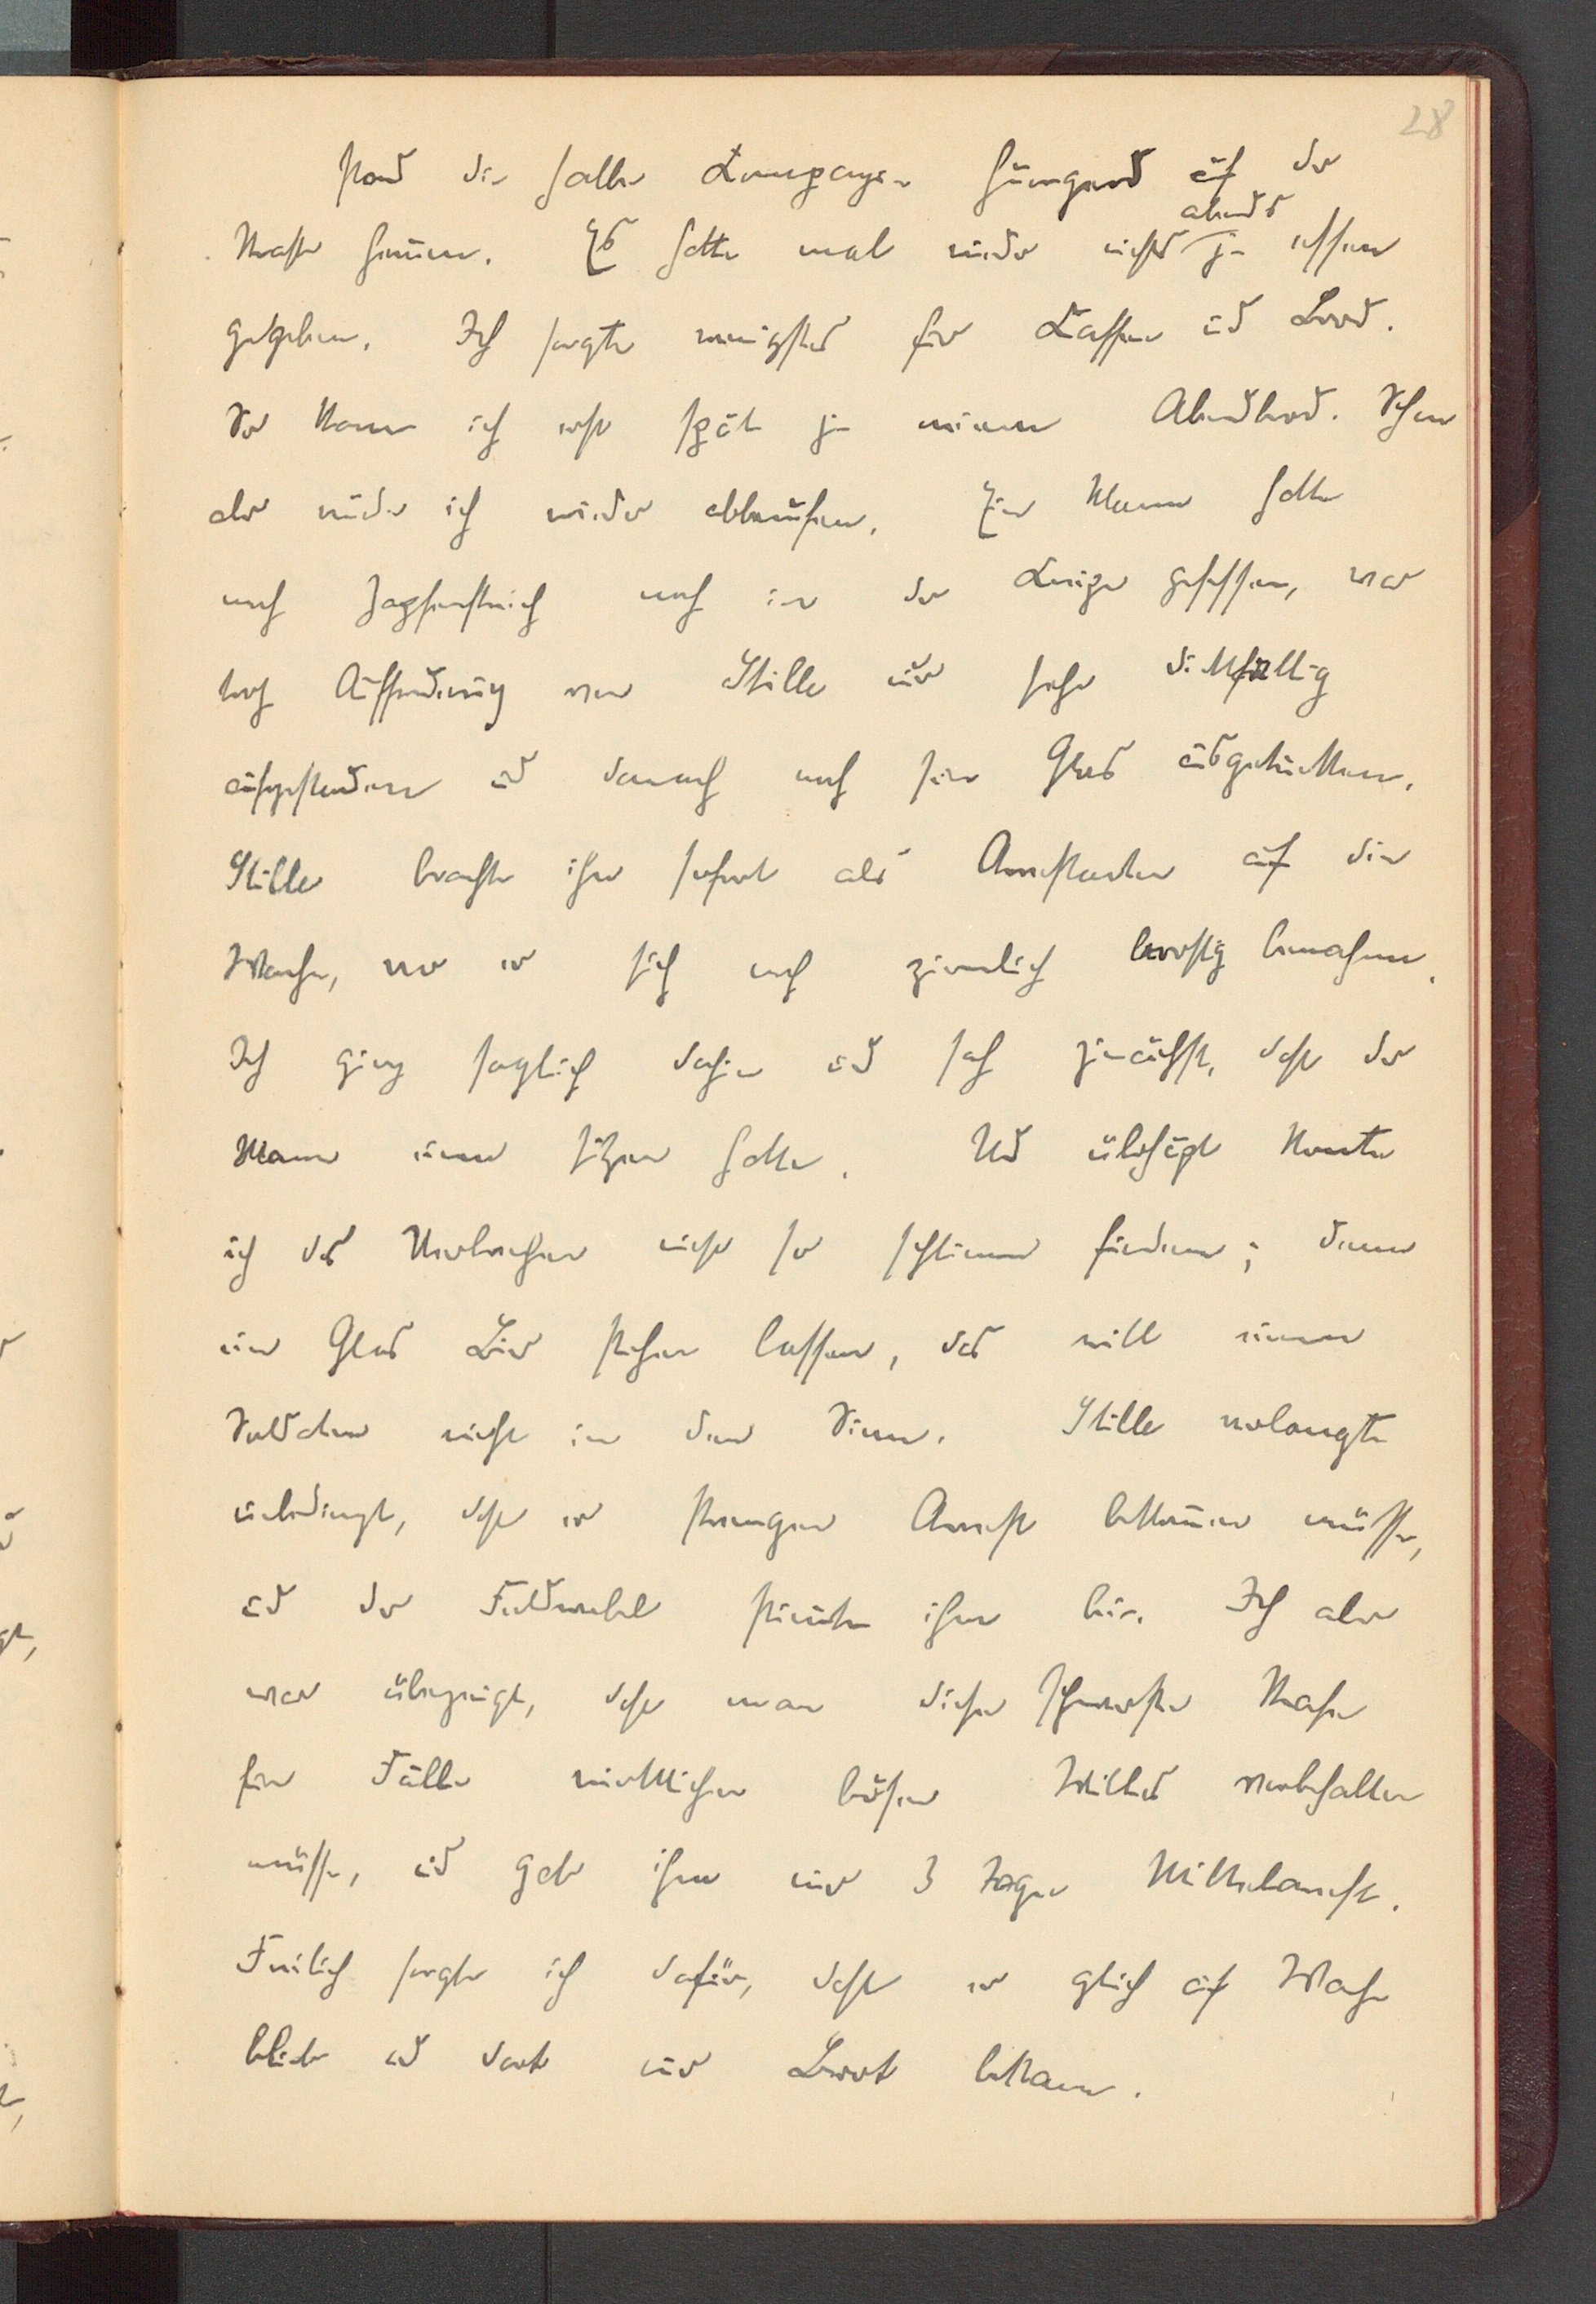 28
stand die halbe Kompagnie hungernd auf der
abends
Straße herum. Es hatte mal wieder nichts zu essen
gegeben. Ich sorgte wenigstens für Kaffee und Brod.
So kam ich erst spät zu meinem Abendbrod. Schon
aber wurde ich wieder abberufen. Ein Mann hatte
nach Zapfenstreich noch in der Kneipe gesessen, war
trotz Aufforderung von Stille nur sehr dickfällig
aufgestanden und danach noch sein Glas ausgetrunken.
Stille brachte ihn sofort als Arrestanten auf die
Wache, wo er sich noch ziemlich brostig benahm.
Ich ging sogleich dahin und sah zunächst, daß der
Mann einen sitzen hatte. Und überhaupt konnte
ich das Verbrechen nicht so schlimm finden; denn
ein Glas Bier stehen lassen, das will einem
Soldaten nicht in den Sinn. Stille verlangte
unbedingt, daß er strengen Arrest bekommen müsse,
und der Feldwebel stimmte ihm bei. Ich aber
war überzeugt, daß man diese schwerste Strafe
für Fälle wirklichen bösen Willens vorbehalten
müsse, und gab ihm nur 3 Tage Mittelarrest.
Freilich sorgte ich dafür, daß er gleich auf Wache
blieb und dort nur Brot bekam.